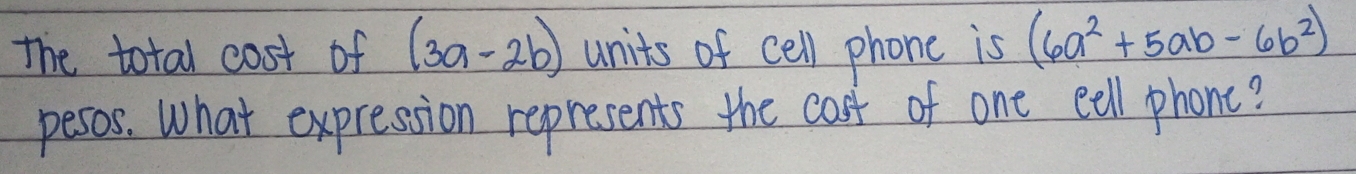 The total cost of (3a-2b) units of cell phone is (6a² + 5ab - 6b²)
pesos. What expression represents the cost of one cell phone?